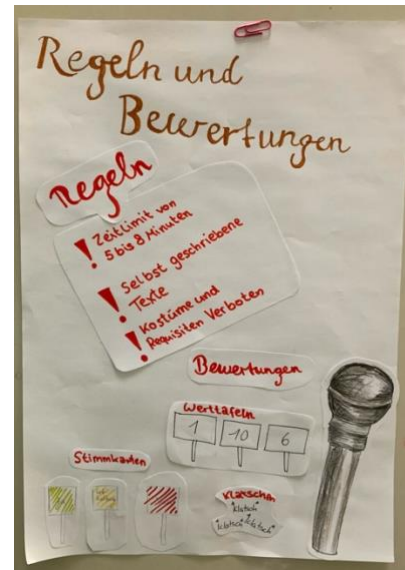 Regeln und
Bewertungen
Regeln
! Zeitlimit von
5 bis 8 Minuten
! Selbst geschriebene
Texte
! Kostüme und
Requisiten Verboten
Bewertungen
Werttafeln
1 10 6
Stimmkarten
Klatschen
"klatsch"
"klatsch" "klatsch"